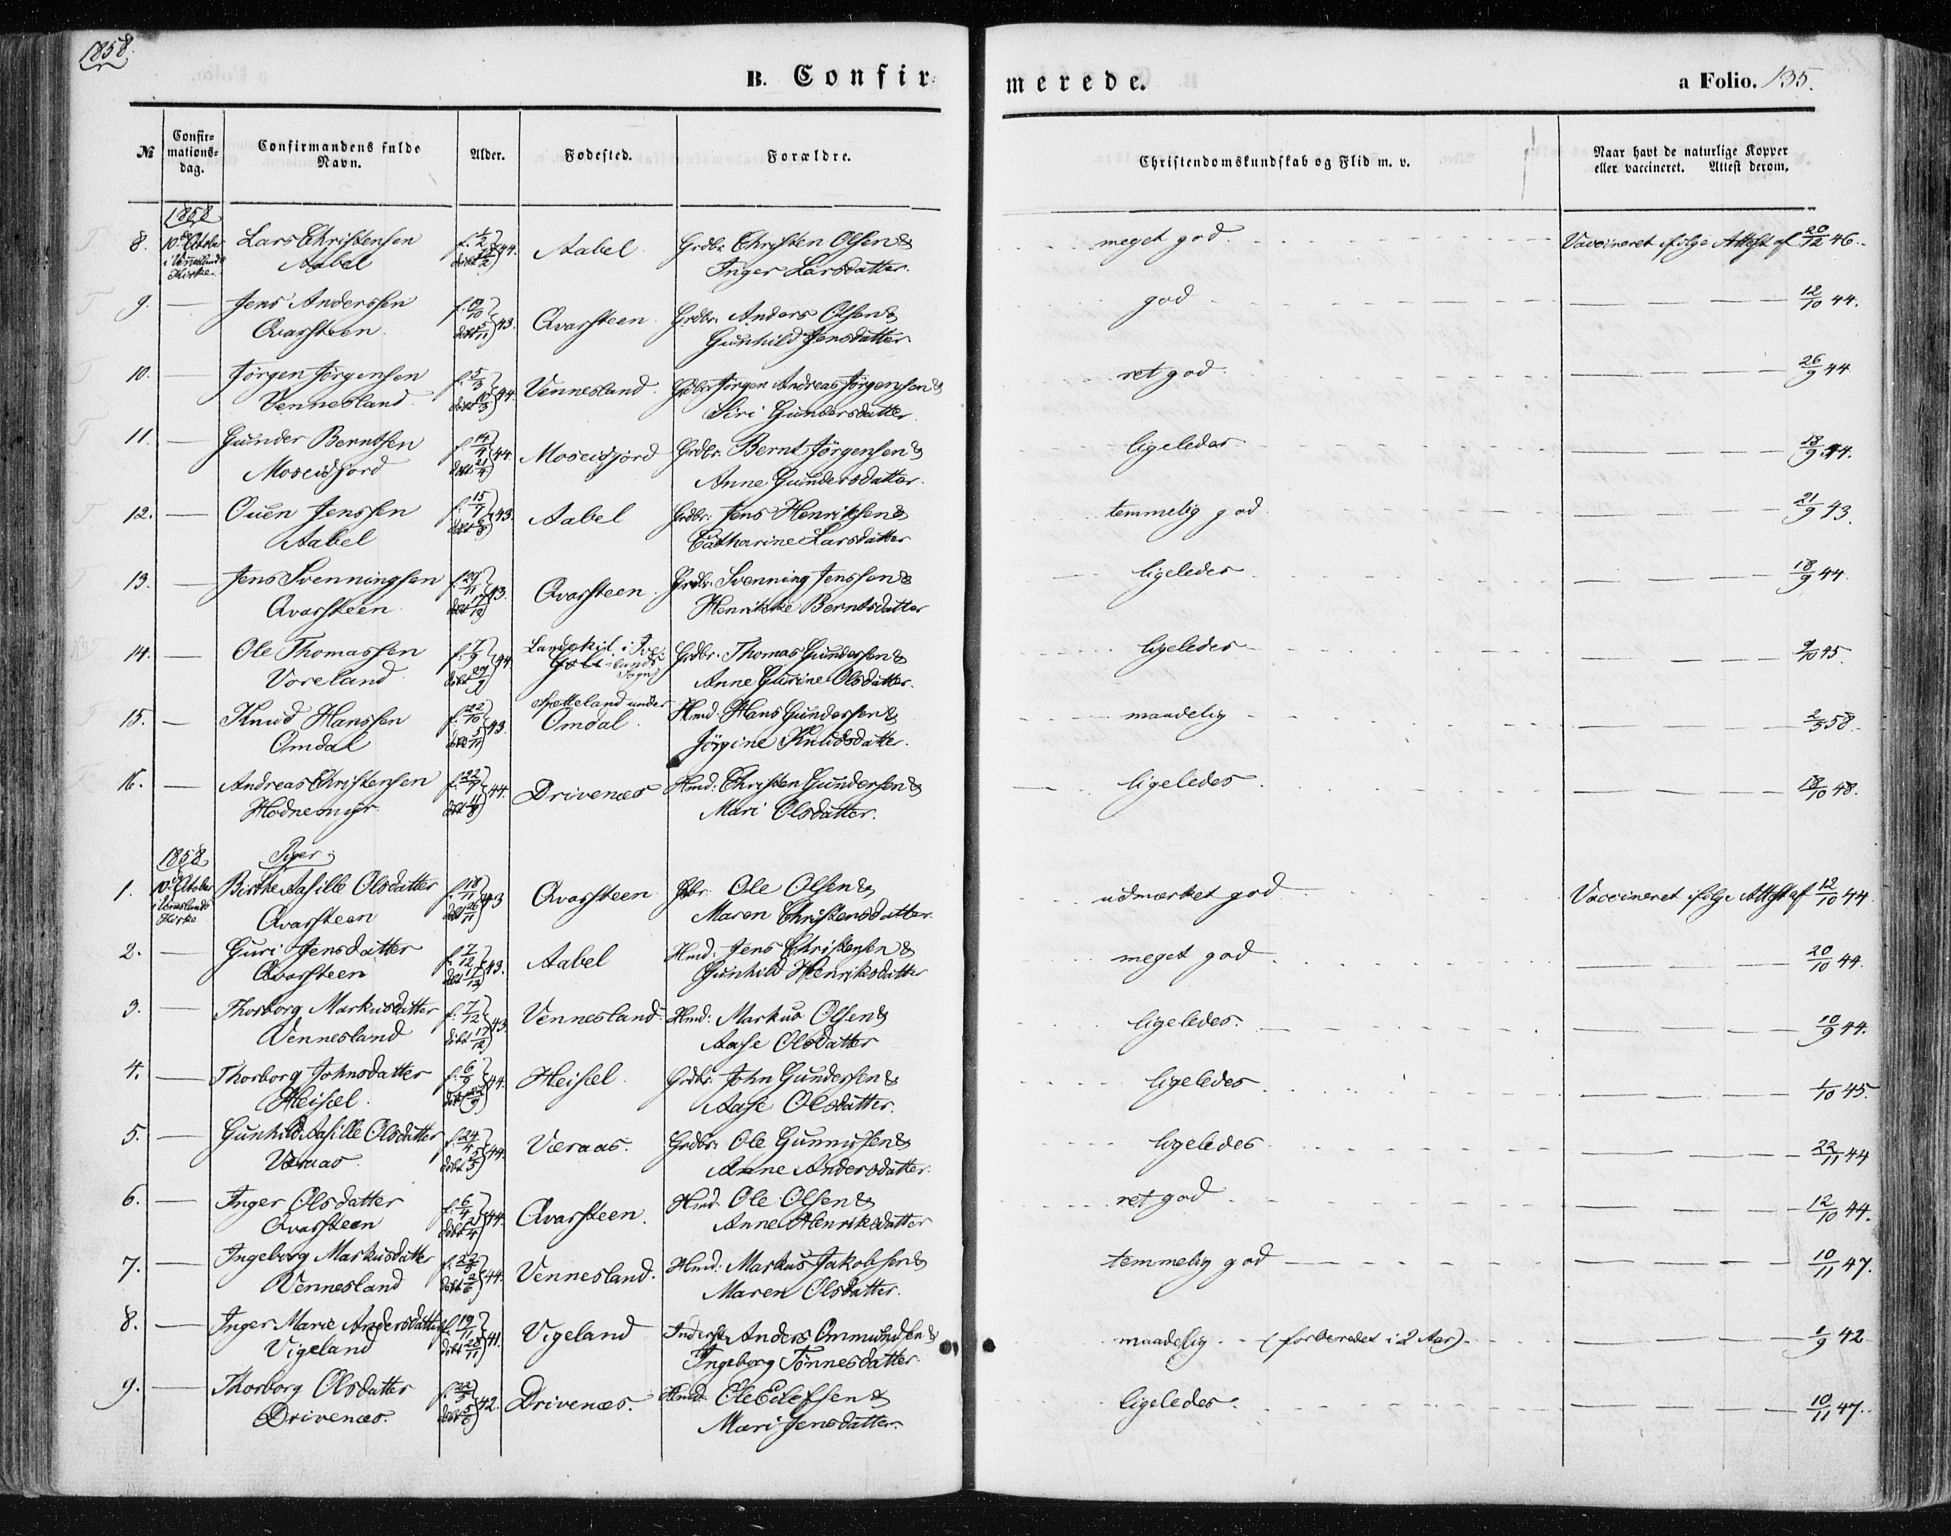 1858.
B. Confirmerede. a Folio. 135.
№ Confirmationsdag. Confirmandens fulde Navn. Alder. Fødested. Forældre. Christendomskundskab og Flid m. v. Naar havt de naturlige Kopper eller vaccineret. Attest derom.
1858
8. 10de October i Venneslands Kirke. Lars Christensen Aabel 44. Aabel Grdbr. Christen Olsen & Inger Larsdatter. meget god. Vaccineret ifølge Attest af 20/12 46.
9. — Jens Anderssen Qvarsteen 43. Qvarsteen Grdbr. Anders Olsen & Gunhild Jensdatter god 12/10 44.
10. Jørgen Jørgensen Vennesland f. 5/3 44. Vennesland Grdbr. Jørgen Andreas Jørgensen & Siri Gundersdatter ret god 26/9 44
11. — Gunder Berntsen Moseidjord f. 14/4 døbt 21/4 44 Moseidjord Grdbr. Bernt Jørgensen & Anne Gundersdatter. ligeledes 18/9 44.
12. — Ouen Jenssen Aabel f. 15/7 43. Aabel Grdbr. Jens Henriksen & Catharine Larsdatter temmelig god 21/9 43.
13. — Jens Svenningsen Qvarsteen f. 29/11 døbt 17/12 43. Qvarsteen Grdbr. Svenning Jenssen & Henrikke Berntsdatter ligeledes 18/9 44.
14. — Ole Thomassen Voreland f. 7/9 døbt 29/9 44 Landskid i Sogn Grdbr. Thomas Gundersen & Anne Gurine Olsdatter. ligeledes 9/10 45.
15. — Knud Hanssen Omdal f. 22/10 døbt 5/11 43. Spetteland under Omdal. Hmd. Hans Gundersen & Jørgine Knudsdatter. maadelig 2/3 58.
16. — Andreas Christensen Hodnemyr f. 22/7 døbt 11/8 44. Drivenæs Hmd. Christen Gundersen & Mari Olsdatter. ligeledes 18/10 48.
1858 Piger;
1. 10de October i Venneslands Kirke Birthe Aasille Olsdatter Qvarsteen f. 18/11 døbt 26/11 43 Qvarsteen Gbr. Ole Olsen & Maren Christensdatter udmærket god Vaccineret ifølge Attest af 12/10 44
2. — Guri Jensdatter Qvarsteen f. 7/12 døbt 17/12 43. Aabel Hmd. Jens Christensen & Gunhild Henriksdatter meget god 20/10 44.
3. — Thorborg Markusdatter Vennesland f. 7/12 døbt 17/12 43 Vennesland Hmd: Markus Olsen & Aase Olsdatter ligeledes. 10/9 44.
4. — Thorborg Johnsdatter Heisel. f. 6/9 44. Heisel. Grdbr. John Gundersen & Aase Olsdatter. ligeledes 1/10 45.
5. — Gunhild Aasille Olsdatter Væraas f. 24/4 døbt 5/5 44. Væraas. Grdbr. Ole Gunnufsen & Anne Andersdatter. ligeledes 22/11 44
6. — Inger Olsdatter Qvarsteen f. 6/4 døbt 21/4 44. Qvarsteen. Hmd. Ole Olsen & Anne Henriksdatter ret god 12/10 44.
7. — Ingeborg Markusdatter Vennesland f. 22/5 døbt 2/6 44. Vennesland. Hmd: Markus Jakobsen & Maren Olsdatter. temmelig god 10/11 47.
8. — Inger Marie Andersdatter Vigeland f. 19/11 døbt 28/11 41. Vigeland Inderst Anders Ommundsen & Ingeborg Tønnesdatter maadelig. (forberedet i 2 Aar). 1/9 42.
9. — Thorborg Olsdatter Drivenæs. f. 22/5 døbt 5/6 42. Drivenæs. Hmd. Ole Eilefsen & Mari Jensdatter. ligeledes. 10/11 47.